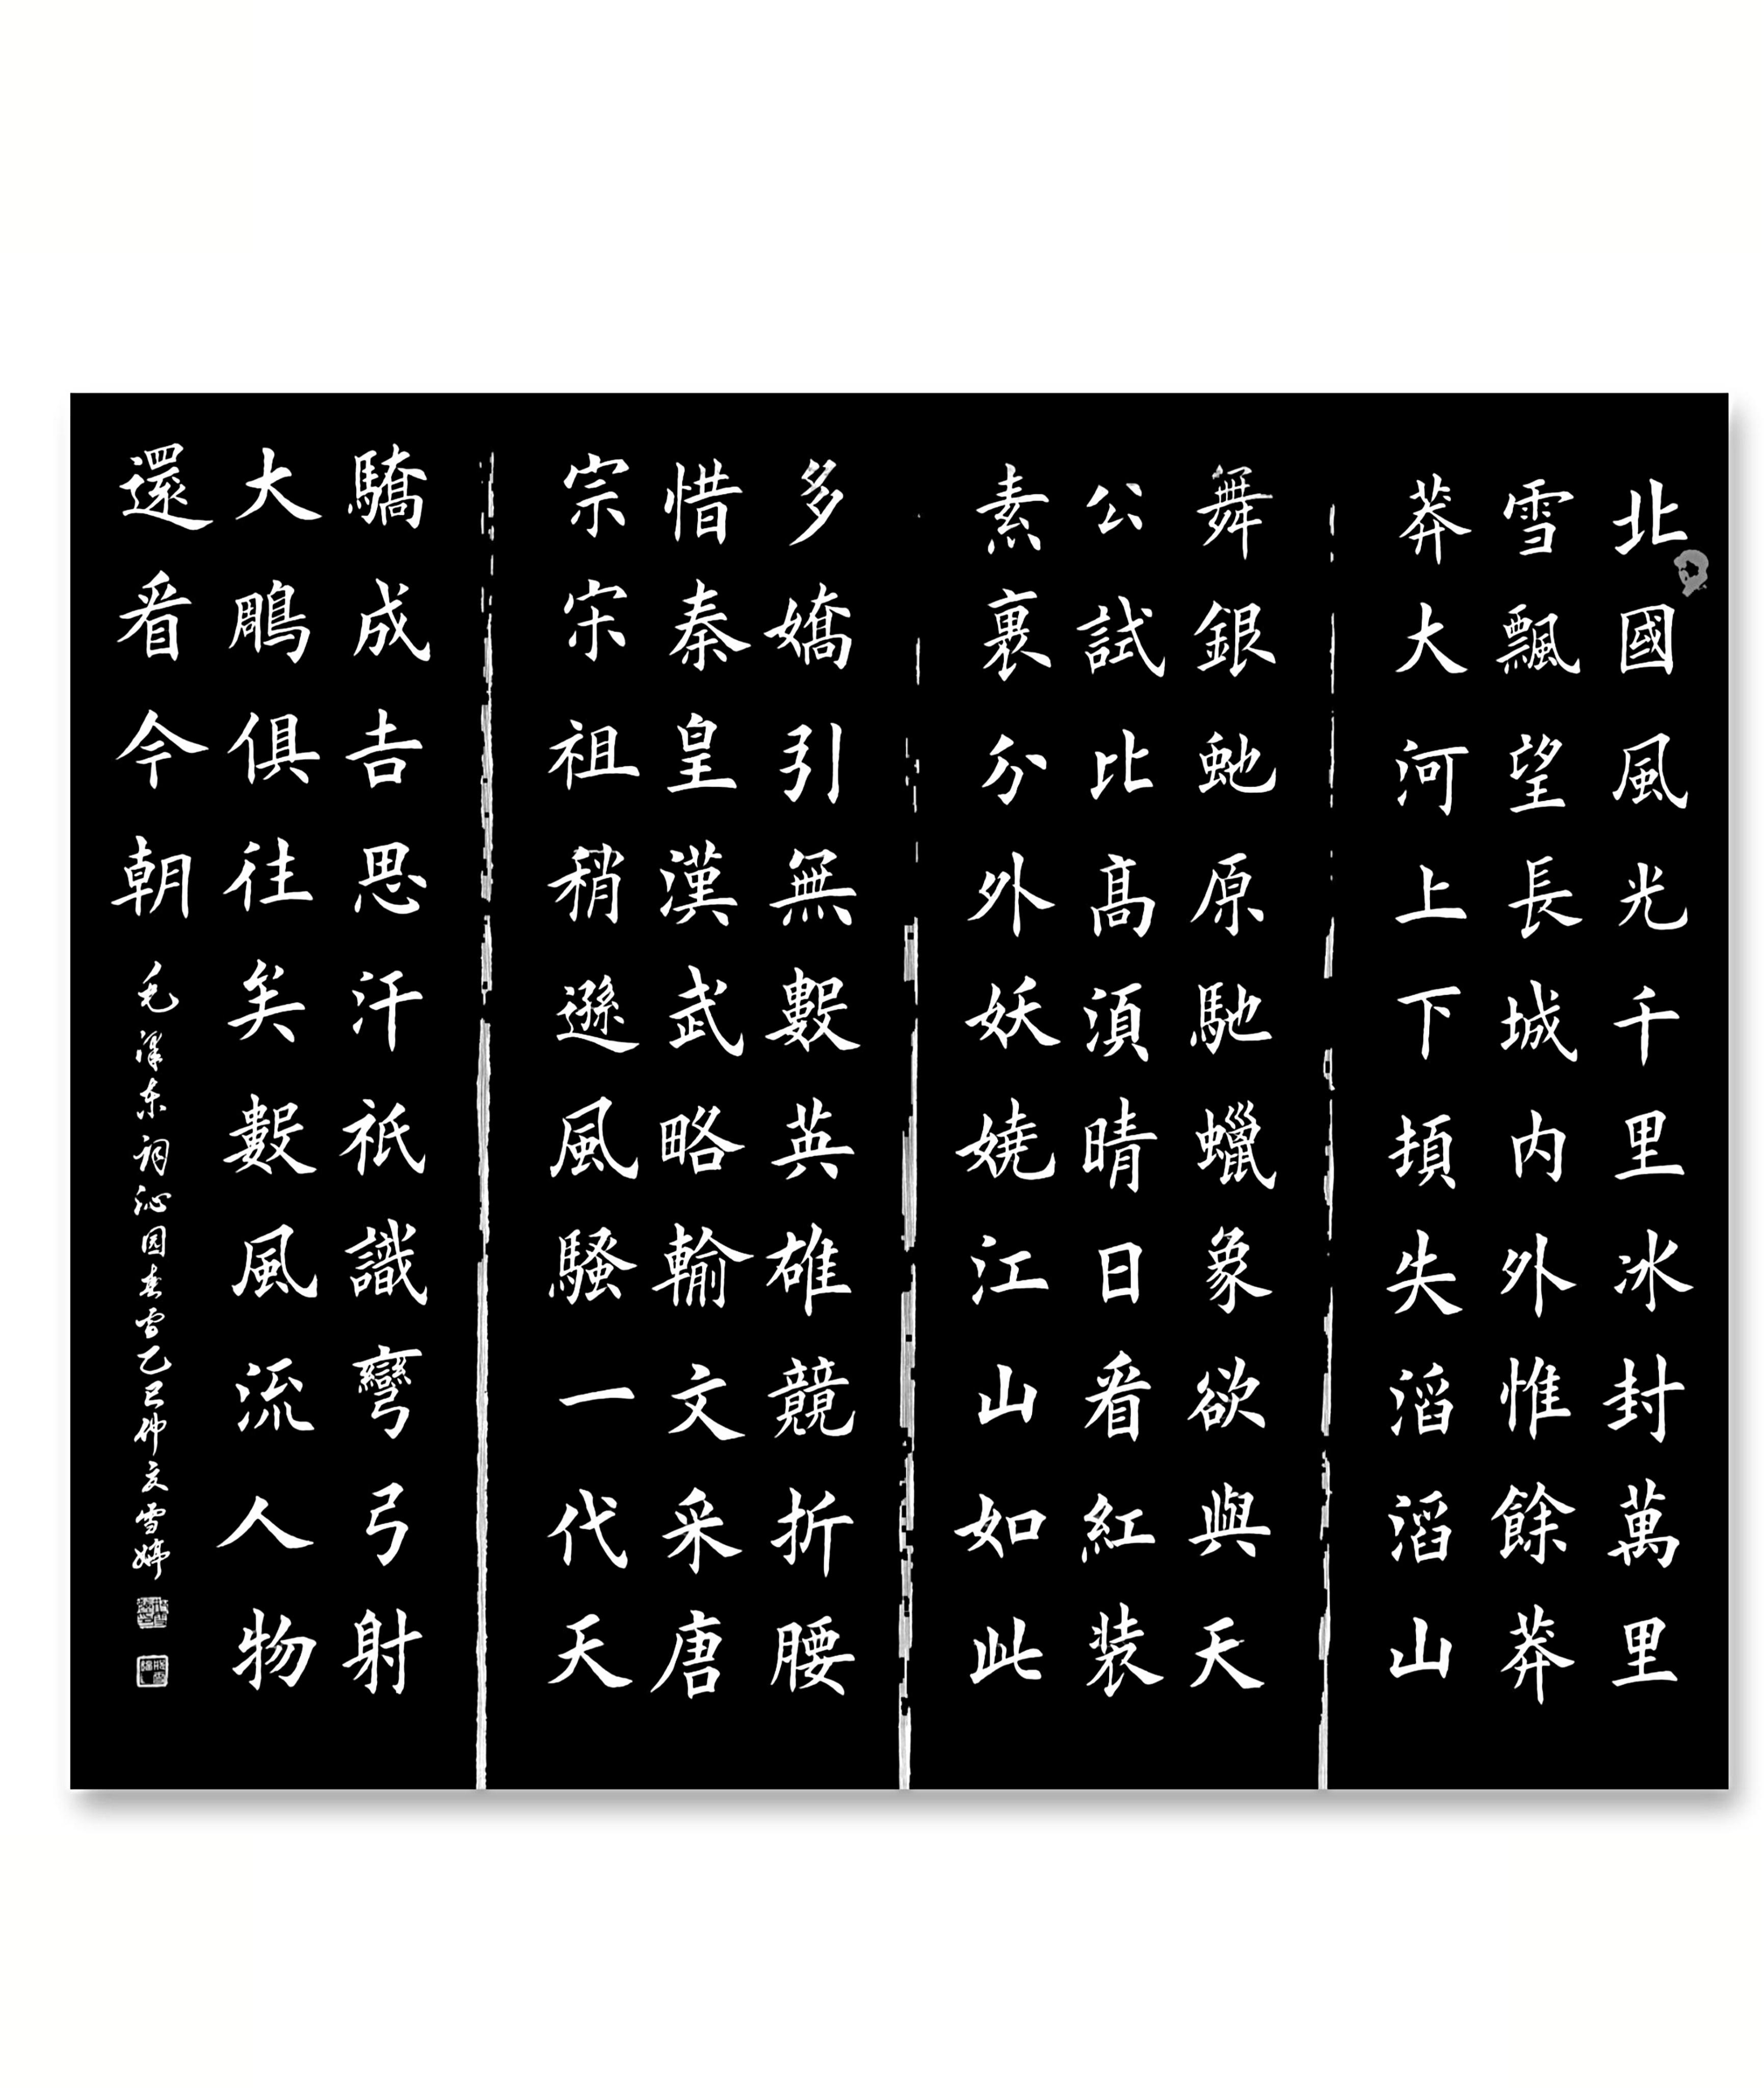 北國風光千里冰封萬里
雪飄望長城内外惟餘莽
莽大河上下頓失滔滔山
舞銀虵原馳蠟象欲與天
公試比高須晴日看紅裝
素裹分外妖嬈江山如此
多嬌引無數英雄競折腰
惜秦皇漢武略輸文采唐
宗宋祖稍遜風騷一代天
驕成吉思汗祇識彎弓射
大鵰俱往矣數風流人物
還看今朝
毛泽东词沁园春雪乙巳仲夏雪婷